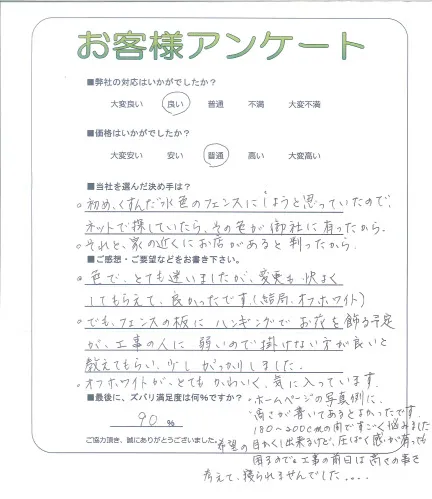 お客様アンケート
■弊社の対応はいかがでしたか?
大変良い 良い 普通 不満 大変不満
■価格はいかがでしたか?
大変安い 安い 普通 高い 大変高い
■当社を選んだ決め手は?
。初め、くすんだ水色のフェンスにしようと思っていたので、
ネットで探していたら、その色が御社に有ったから。
。それと、家の近くにお店があると判ったから。
■ご感想・ご要望などをお書き下さい。
。色で、とても迷いましたが、変更も快よく
してもらえて、良かったです。(結局、オフホワイト)
。でも、フェンスの板にハンギングでお花を飾る予定
が、工事の人に弱いので掛けない方が良いと
教えてもらい、少しがっかりしました。
。オフホワイトが、とてもかわいく、気に入っています。
■最後に、ズバリ満足度は何%ですか?
90 %
ご協力頂き、誠にありがとうございました。
・ホームページの写真側に、
高さが書いてあるとよかったです。
180~200cmの間ですごく悩みました
希望の目かくし出来るけど、圧ぱく感が有っても
困るので。工事の前日は高さの事を
考えて、寝られませんでした....